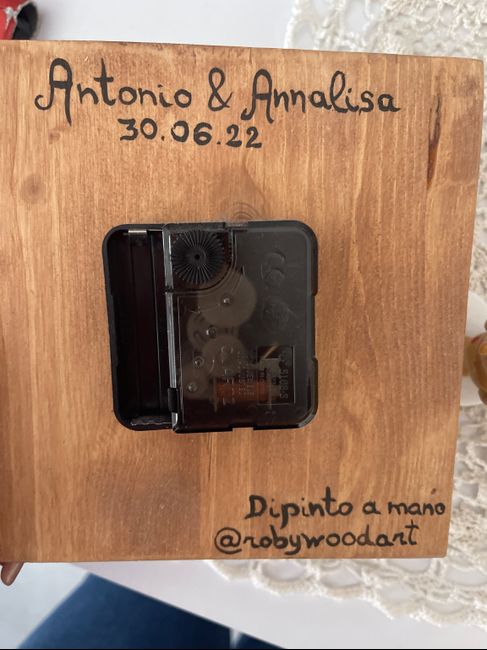 Antonio & Annalisa
30.06.22
Dipinto a mano
@robywoodart